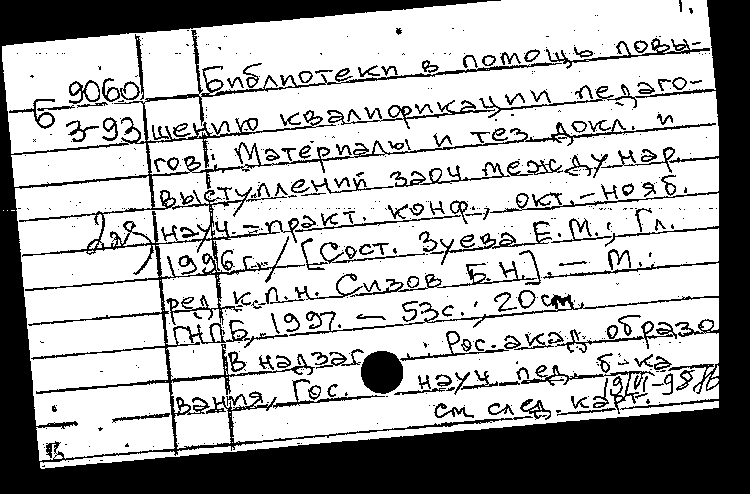 1.
Б 9060
З-93
Библиотеки в помощь повы-
шению квалификации педаго-
гов: Материалы и тез. докл. и
выступлений заоч. междунар.
науч.-практ. конф., окт.-нояб.
1996 г. / [Сост. Зуева Е.М.; Гл.
ред. к.п.н. Сизов Б.Н.]. — М.:
ГНПБ, 1997. — 53с.; 20см.
В надзаг.: Рос. акад. образо
вания, Гос. науч. пед. б-ка
см след. карт.